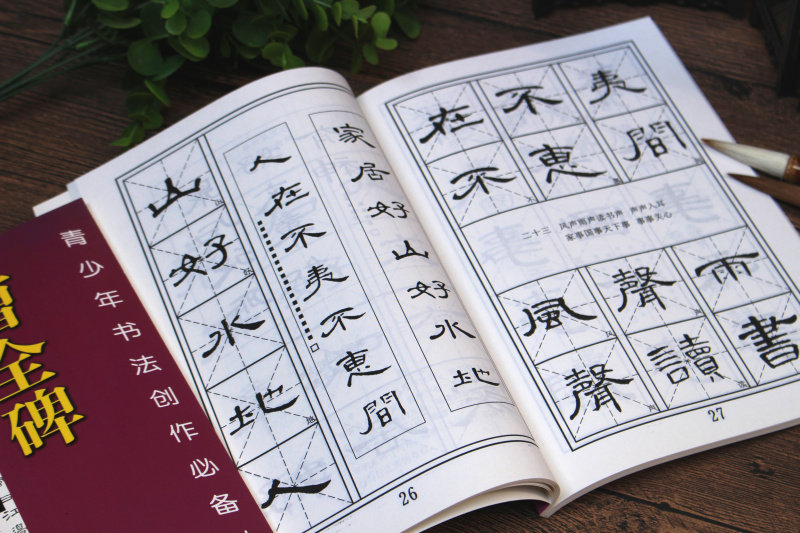 全碑
青少年书法创作必备
山
好
水
地
人
家居好山好水地
人在不夷不惠間
26
在不夷
不惠間
二十三 风声雨声读书声 声声入耳
家事国事天下事 事事关心
風聲雨
聲讀書
27